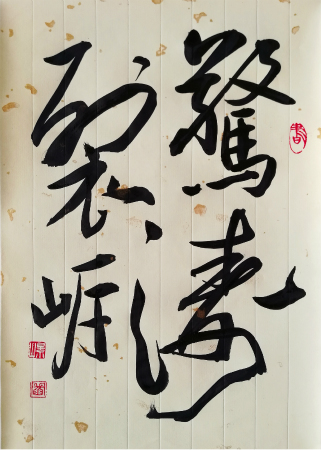 驚濤
裂岸